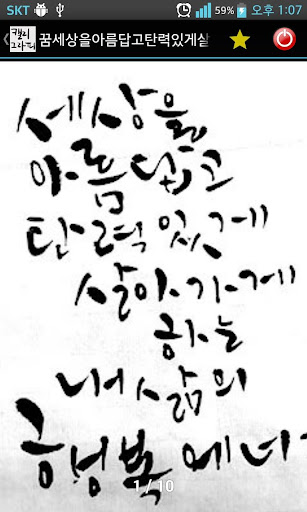 SKT 59% 오후 1:07
캘리
그라피
꿈세상을아름답고탄력있게살
세상을
아름답고
탄력있게
살아가게
하는
내 삶의
행복 에너
1 / 10